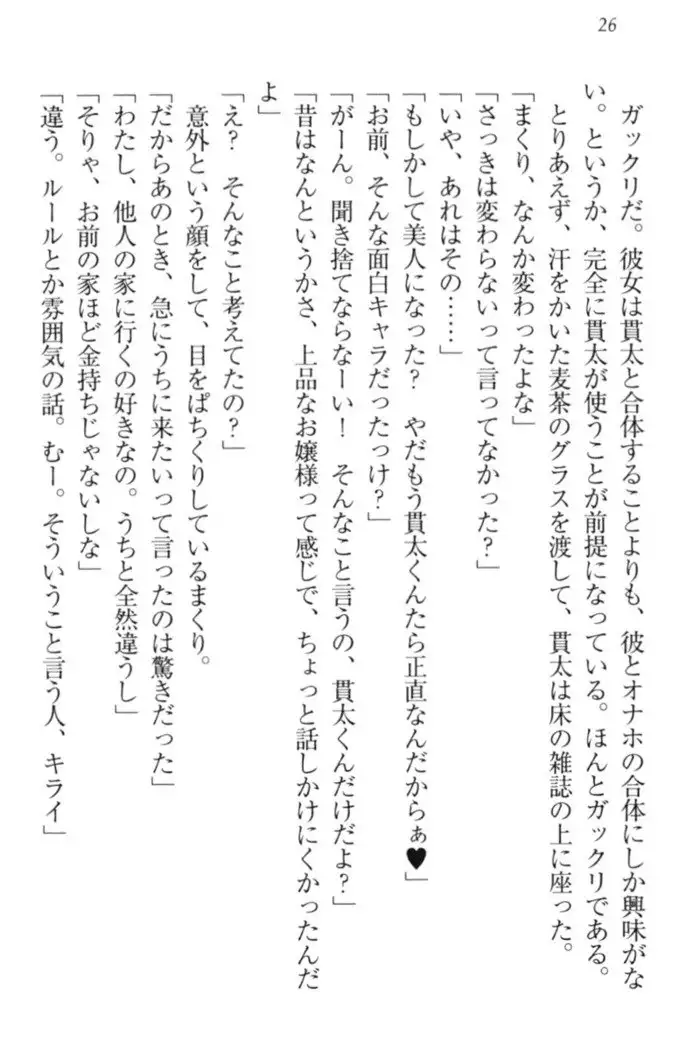 26
　ガックリだ。彼女は貫太と合体することよりも、彼とオナホの合体にしか興味がな
い。というか、完全に貫太が使うことが前提になっている。ほんとガックリである。
　とりあえず、汗をかいた麦茶のグラスを渡して、貫太は床の雑誌の上に座った。
「まくり、なんか変わったよな」
「さっきは変わらないって言ってなかった？」
「いや、あれはその……」
「もしかして美人になった？　やだもう貫太くんたら正直なんだからぁ♥」
「お前、そんな面白キャラだったっけ？」
「がーん。聞き捨てならなーい！　そんなこと言うの、貫太くんだけだよ？」
「昔はなんというかさ、上品なお嬢様って感じで、ちょっと話しかけにくかったんだ
よ」
「え？　そんなこと考えてたの？」
　意外という顔をして、目をぱちくりしているまくり。
「だからあのとき、急にうちに来たいって言ったのは驚きだった」
「わたし、他人の家に行くの好きなの。うちと全然違うし」
「そりゃ、お前の家ほど金持ちじゃないしな」
「違う。ルールとか雰囲気の話。むー。そういうこと言う人、キライ」